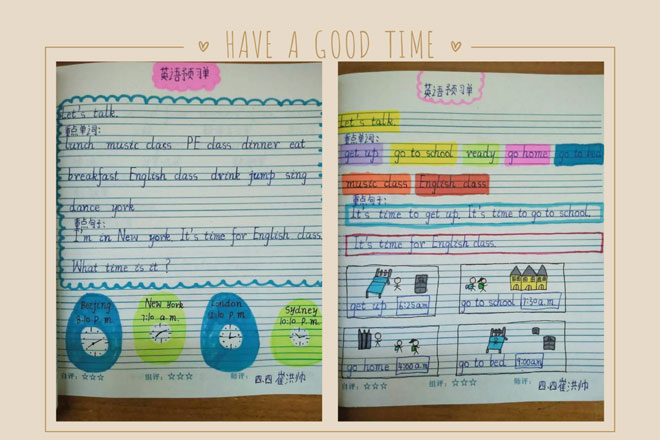 HAVE A GOOD TIME
英语预习单
Let's talk.
重点单词:
lunch music class PE class dinner eat
breakfast English class drink jump sing
dance york
重点句子:
I'm in New york. It's time for English class.
What time is it?
Beijing
New York
London
Sydney
7:10 a.m.
12:10 p.m.
10:10 p.m.
自评:☆☆☆ 组评:☆☆☆ 师评:
四.四 崔洪帅
英语预习单
Let's talk.
重点单词:
get up go to school ready go home go to bed
music class English class
重点句子:
It's time to get up. It's time to go to school.
It's time for English class.
get up 6:25a.m
go to school 7:30a.m.
go home 4:00a.m
go to bed 9:00a.m
自评:☆☆☆ 组评:☆☆☆ 师评:
四.四崔洪帅